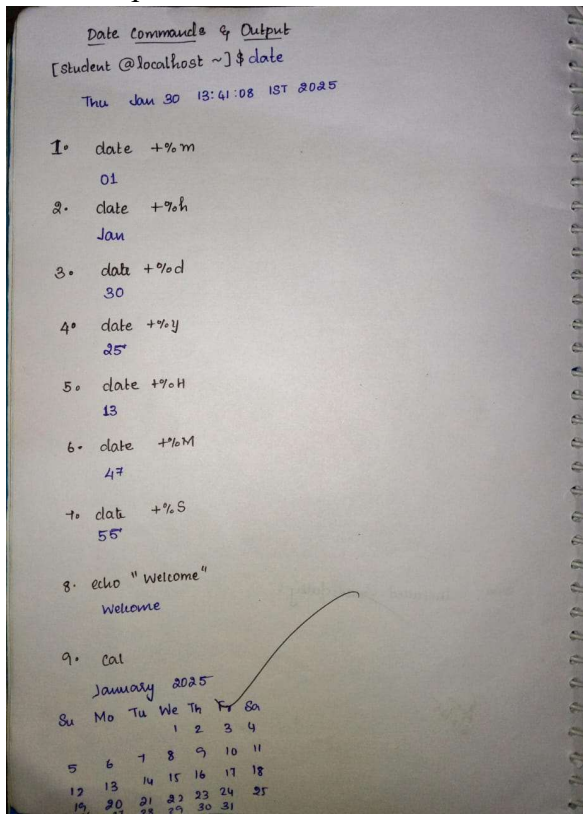 Date Commands & Output
[student @localhost ~]$ date
Thu Jan 30 13:41:08 IST 2025
1. date +%m
01
2. date +%h
Jan
3. date +%d
30
4. date +%y
25
5. date +%H
13
6. date +%M
47
7. date +%S
55
8. echo "Welcome"
Welcome
9. cal
January 2025
Su Mo Tu We Th Fr Sa
1 2 3 4
5 6 7 8 9 10 11
12 13 14 15 16 17 18
19 20 21 22 23 24 25
27 28 29 30 31